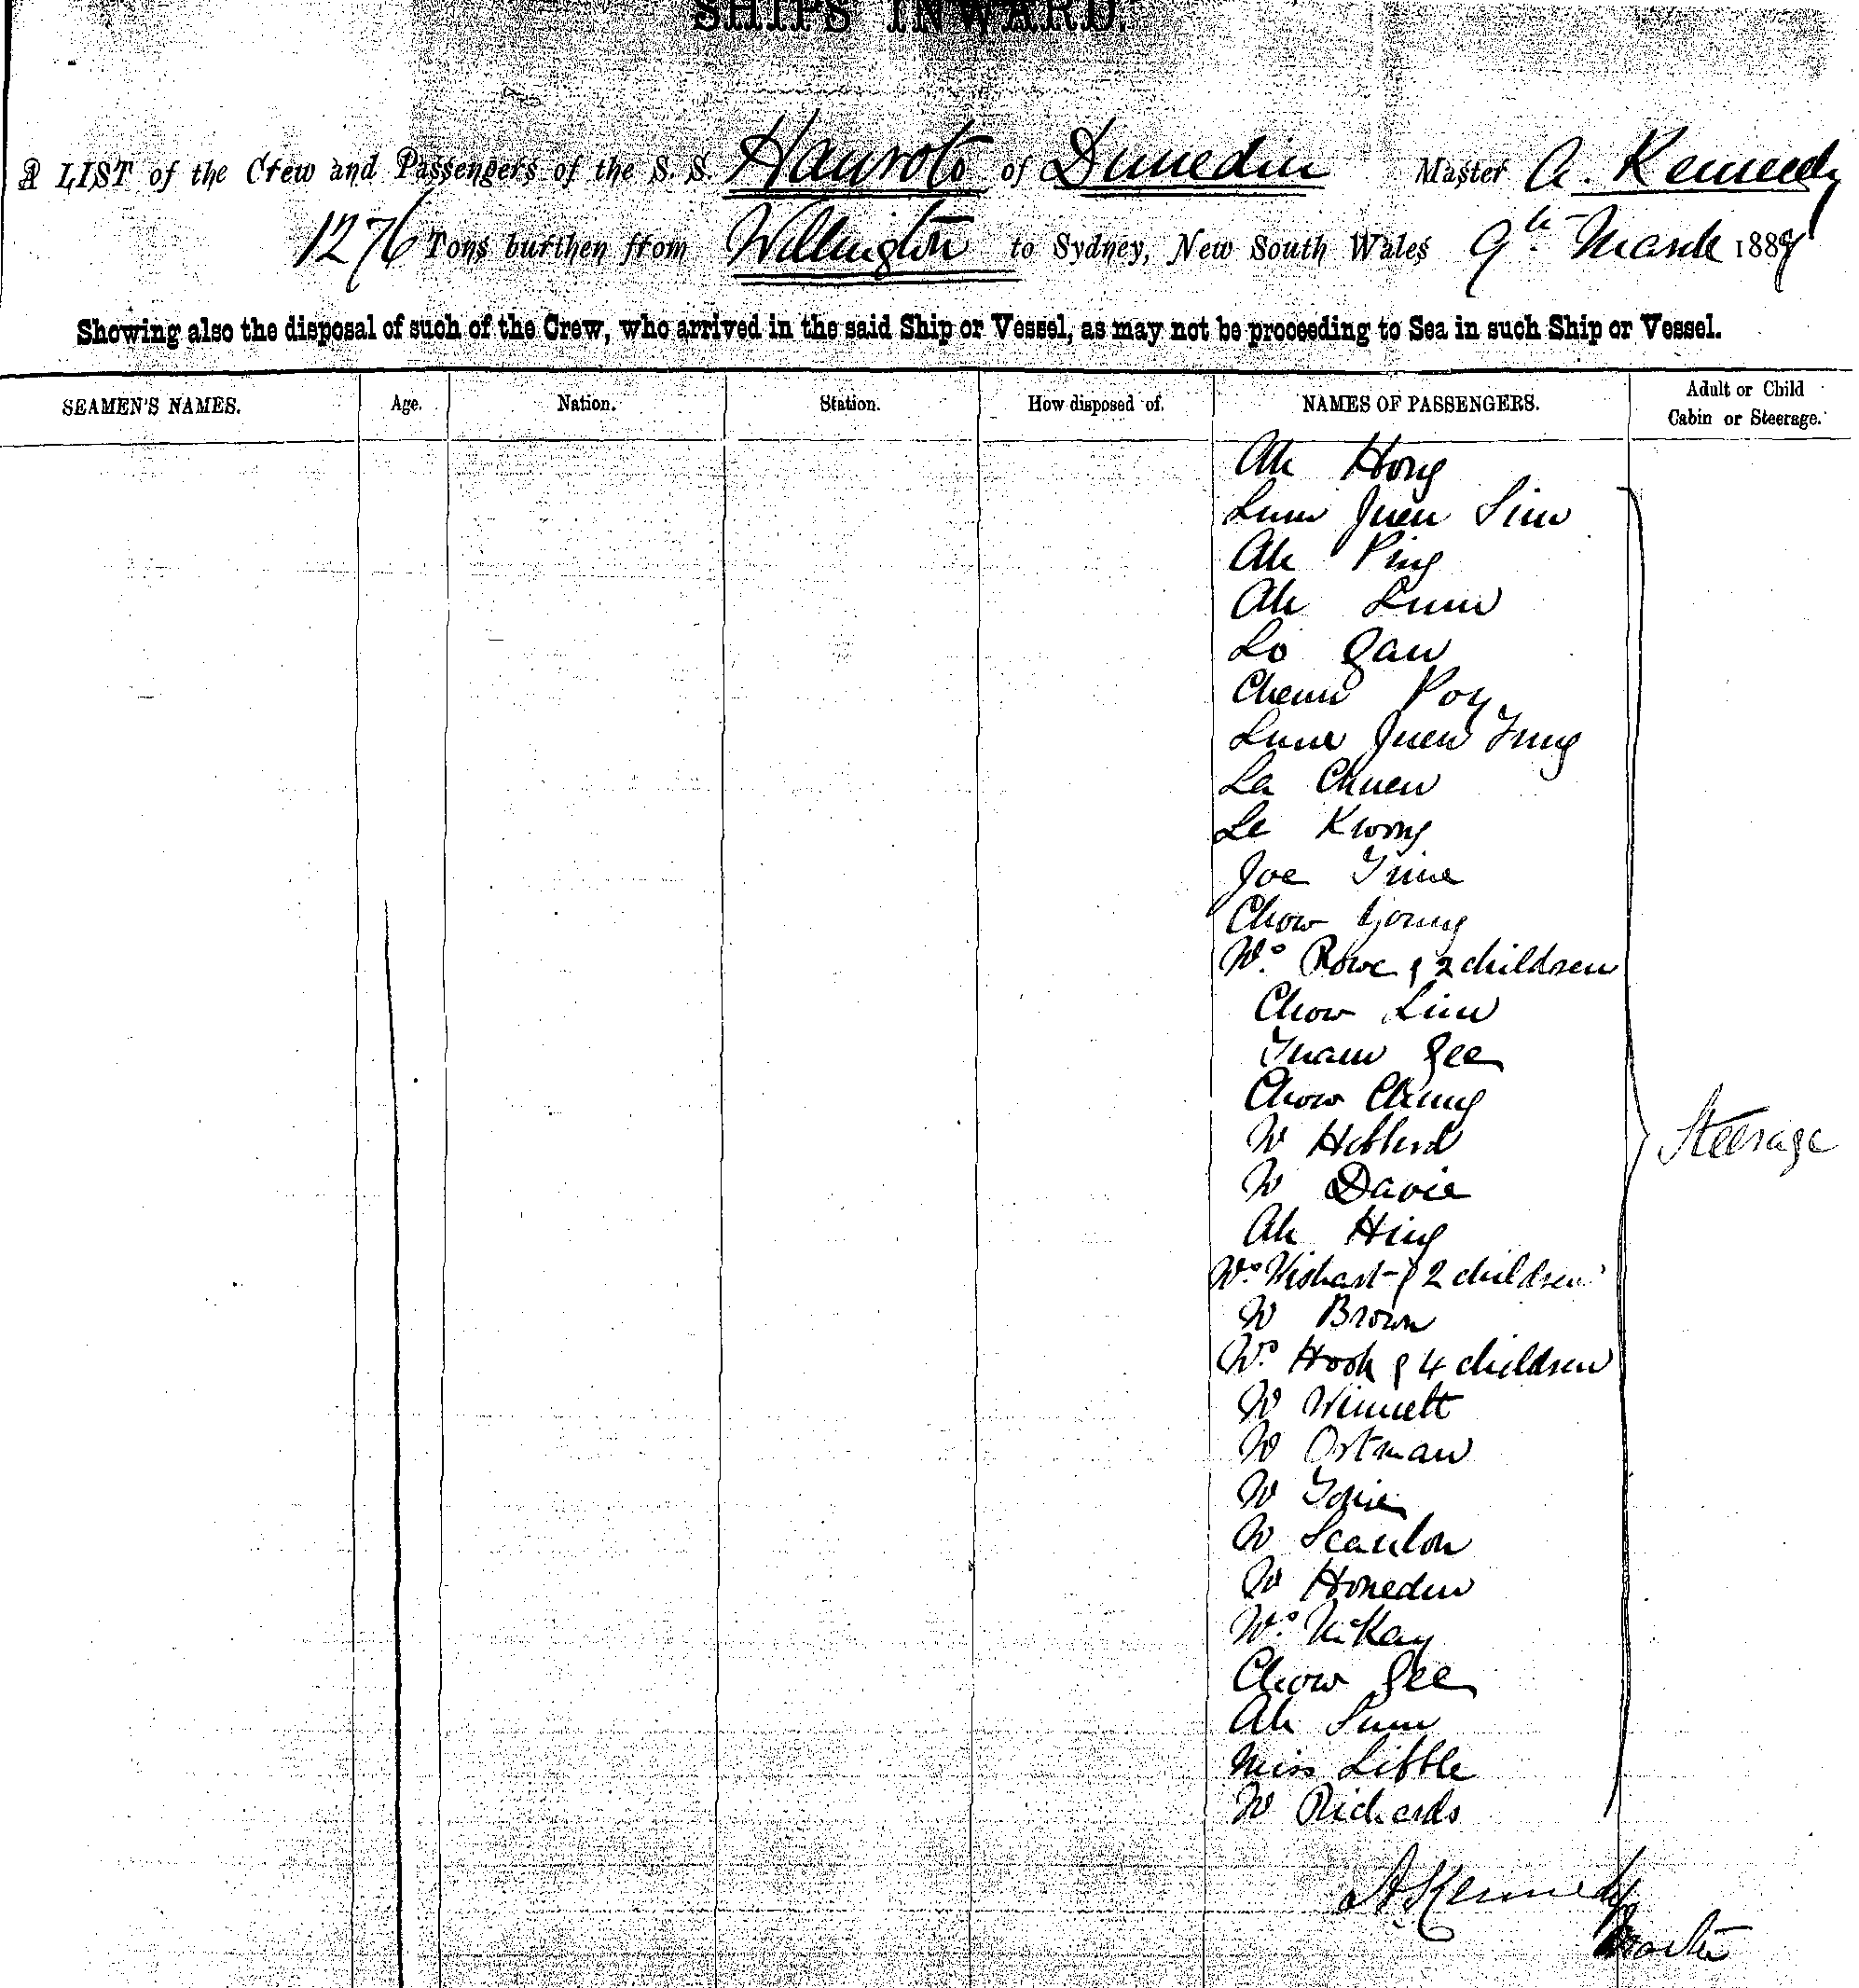 SHIPS INWARD.
A LIST of the Crew and Passengers of the S. S. Hauroto of Dunedin Master A. Kennedy
1276 Tons burthen from Wellington to Sydney, New South Wales 9th March 1889
Showing also the disposal of such of the Crew, who arrived in the said Ship or Vessel, as may not be proceeding to Sea in such Ship or Vessel.
SEAMEN'S NAMES. Age. Nation. Station. How disposed of. NAMES OF PASSENGERS. Adult or Child Cabin or Steerage.
Ah Hong
Lum Juen Sim
Ah Ping
Ah Lum
Lo Gan
Poy
Lum Juen
La Chuen
Le Kwong
Joe
Chow Young
Rowe & 2 children
Chow Lim
Gee
Chow Chung
Steerage
Hibberd
Davie
Ah Hing
Wishart & 2 children
Brown
Hook & 4 children
Winnett
Ortman
Scanlon
McKay
Chow Gee
Ah Sum
Miss Little
Richards
A Kennedy
Master